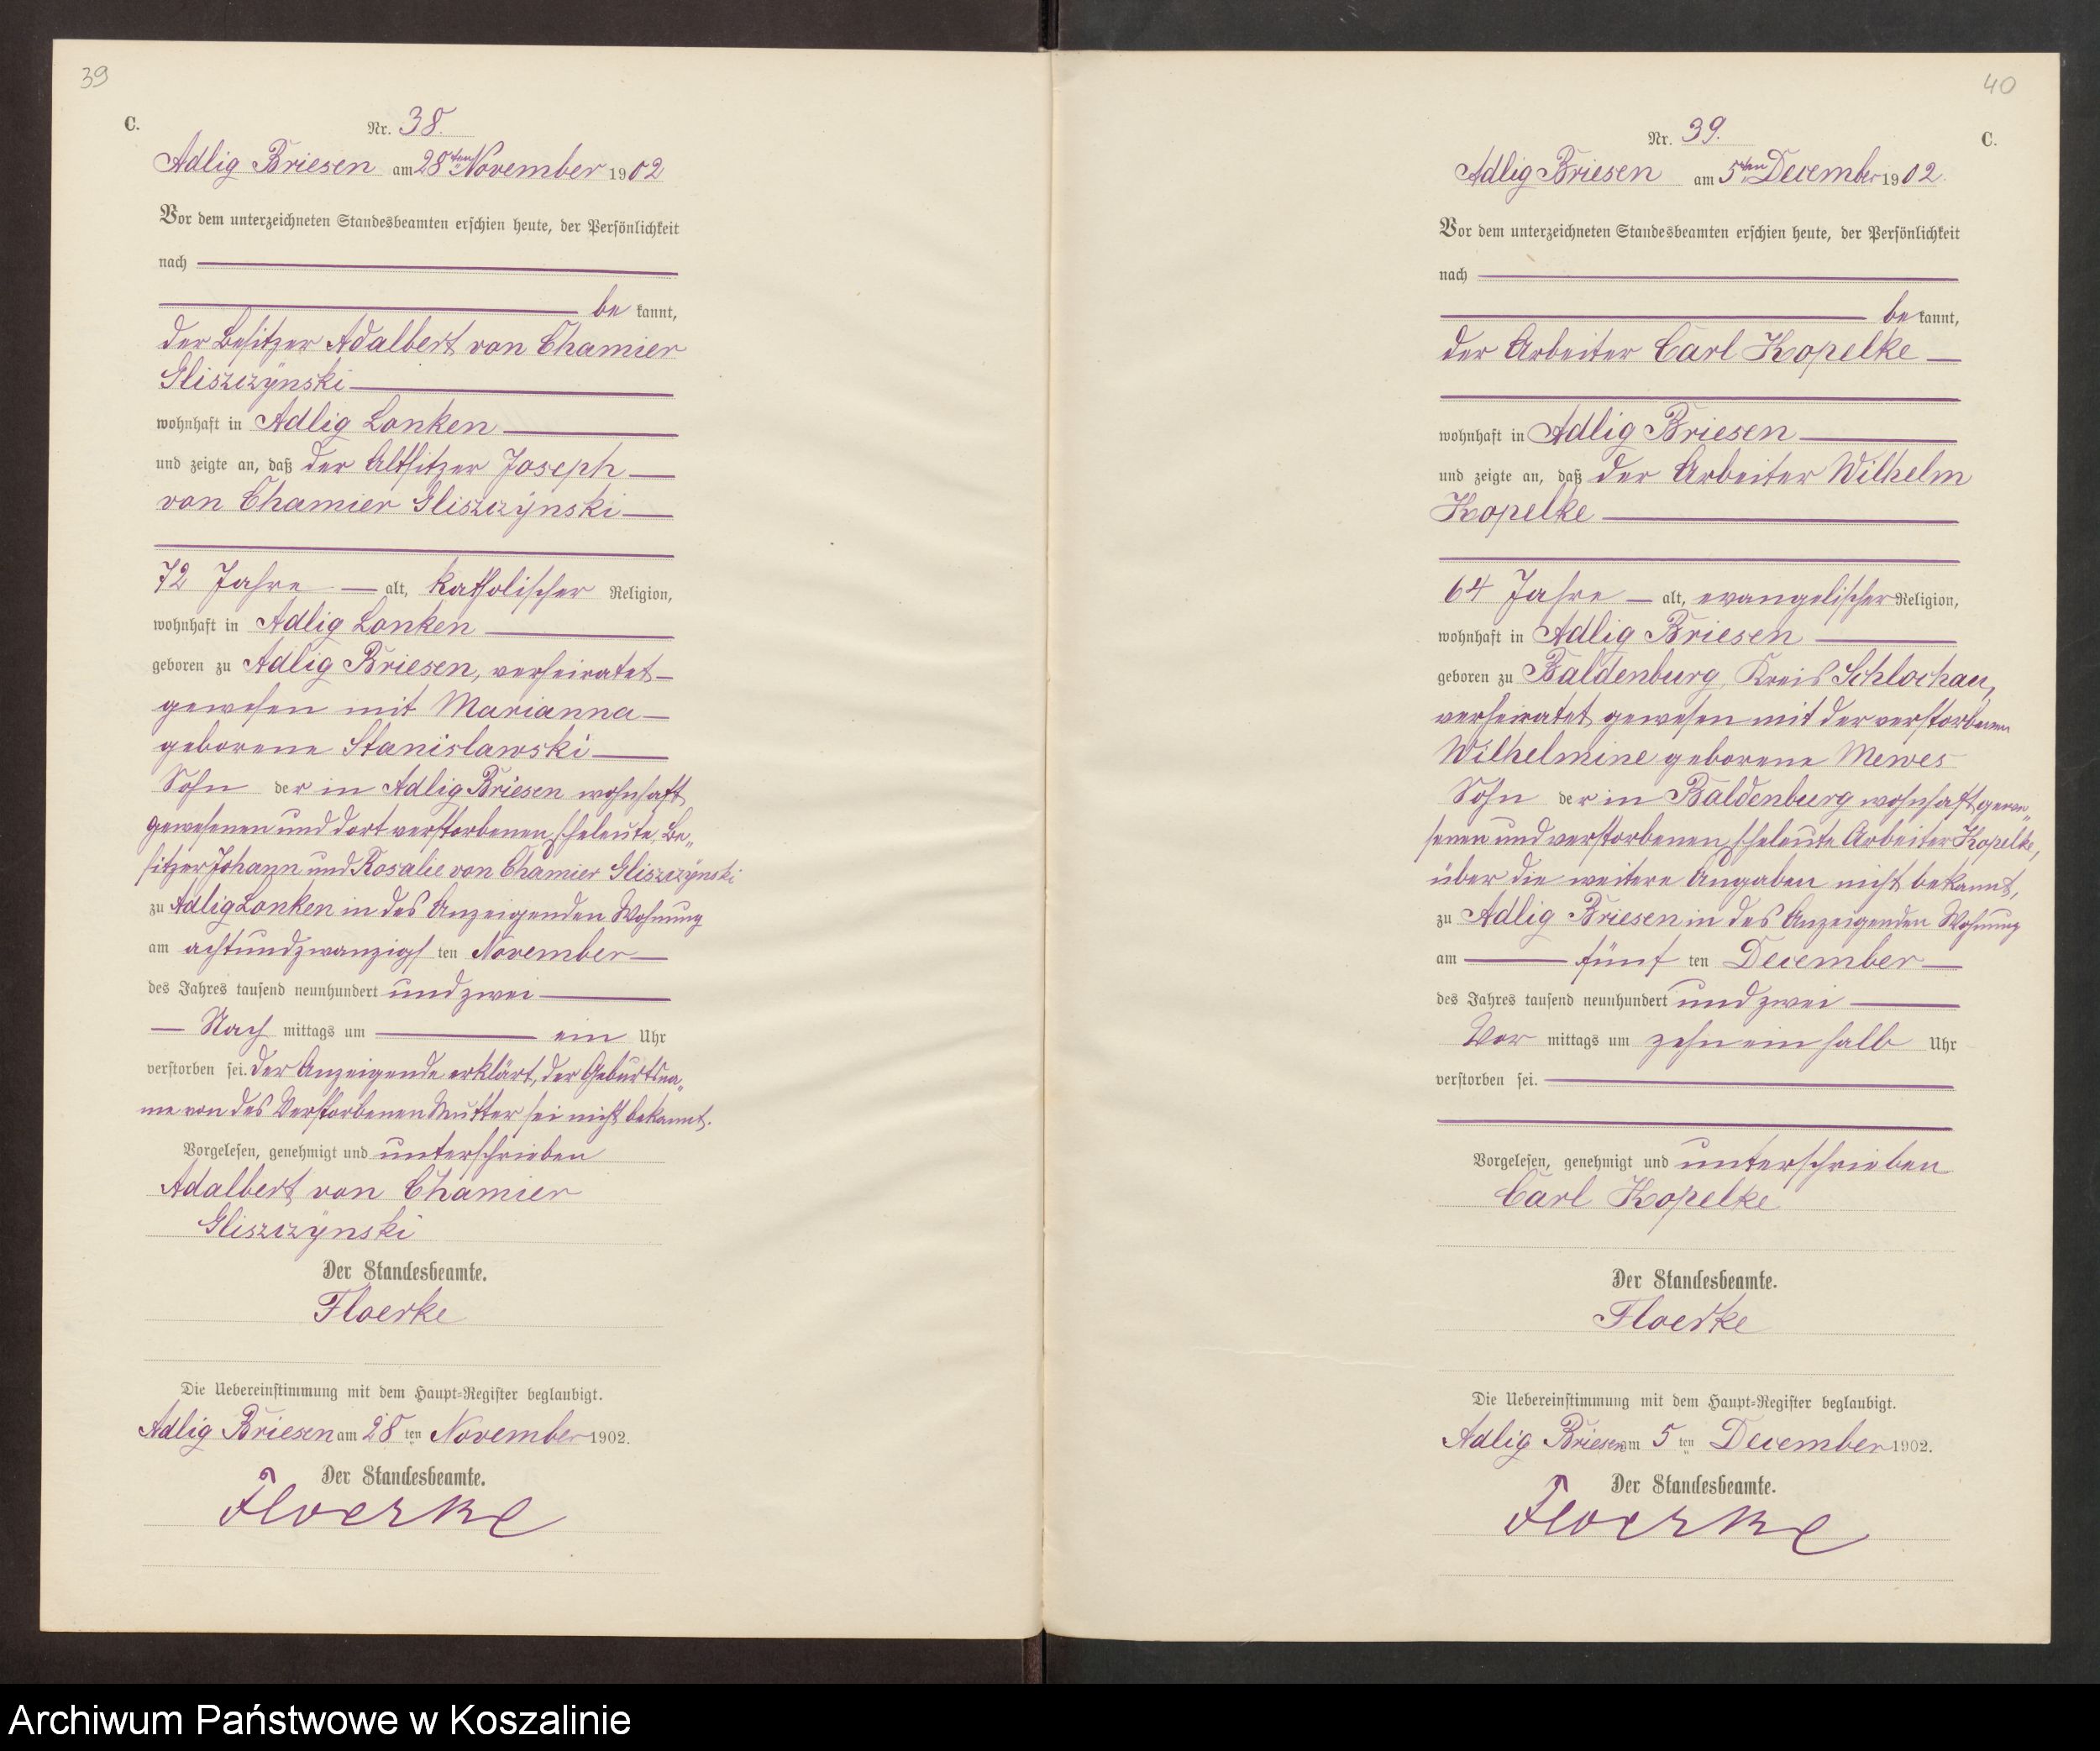 39
C.
Nr. 38.
Adlig Briesen am 28ten November 1902
Vor dem unterzeichneten Standesbeamten erschien heute, der Persönlichkeit
nach
be kannt,
der Besitzer Adalbert von Chamier
Gliszczÿnski
wohnhaft in Adlig Lonken
und zeigte an, daß der Altsitzer Joseph
von Chamier Gliszczÿnski
72 Jahre alt, katholischer Religion,
wohnhaft in Adlig Lonken
geboren zu Adlig Briesen, verheiratet
gewesen mit Marianna
geborene Stanislawski
Sohn der in Adlig Briesen wohnhaft
gewesenen und dort verstorbenen Eheleute, Be„
sitzer Johann und Rosalie von Chamier Gliszczÿnski
zu Adlig Lonken in des Anzeigenden Wohnung
am achtundzwanzigsten November
des Jahres tausend neunhundert und zwei
Nach mittags um ein Uhr
verstorben sei. Der Anzeigende erklärt, der Geburtsna„
me von des Verstorbenen Mutter sei nicht bekannt.
Vorgelesen, genehmigt und unterschrieben
Adalbert von Chamier
Gliszczÿnski
Der Standesbeamte.
Floerke
Die Uebereinstimmung mit dem Haupt-Register beglaubigt.
Adlig Briesen am 28 ten November 1902.
Der Standesbeamte.
Floerke
40
Nr. 39.
C.
Adlig Briesen am 5ten December 1902.
Vor dem unterzeichneten Standesbeamten erschien heute, der Persönlichkeit
nach
be kannt,
der Arbeiter Carl Kopelke
wohnhaft in Adlig Briesen
und zeigte an, daß der Arbeiter Wilhelm
Kopelke
64 Jahre alt, evangelischer Religion,
wohnhaft in Adlig Briesen
geboren zu Baldenburg, Kreis Schlochau,
verheiratet gewesen mit der verstorbenen
Wilhelmine geborene Mewes
Sohn der in Baldenburg wohnhaft gewe„
senen und verstorbenen Eheleute Arbeiter Kopelke,
über die weitere Angaben nicht bekannt,
zu Adlig Briesen in des Anzeigenden Wohnung
am fünf ten December
des Jahres tausend neunhundert und zwei
Vor mittags um zehn ein halb Uhr
verstorben sei.
Vorgelesen, genehmigt und unterschrieben
Carl Kopelke
Der Standesbeamte.
Floerke
Die Uebereinstimmung mit dem Haupt-Register beglaubigt.
Adlig Briesen am 5 ten December 1902.
Der Standesbeamte.
Floerke
Archiwum Państwowe w Koszalinie